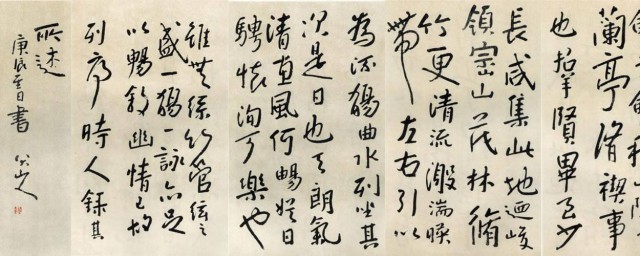 蘭亭脩禊事
也群賢畢至少
長咸集此地迺峻
領崇山茂林脩
竹更清流激湍暎
帶左右引以
為流觴曲水列坐其
次是日也天朗氣
清惠風和暢娛目
騁懷洵可樂也
雖無絲竹管弦之
盛一觴一詠亦足
以暢敘幽情已故
列序時人錄其
所述
庚辰至日書
八大山人